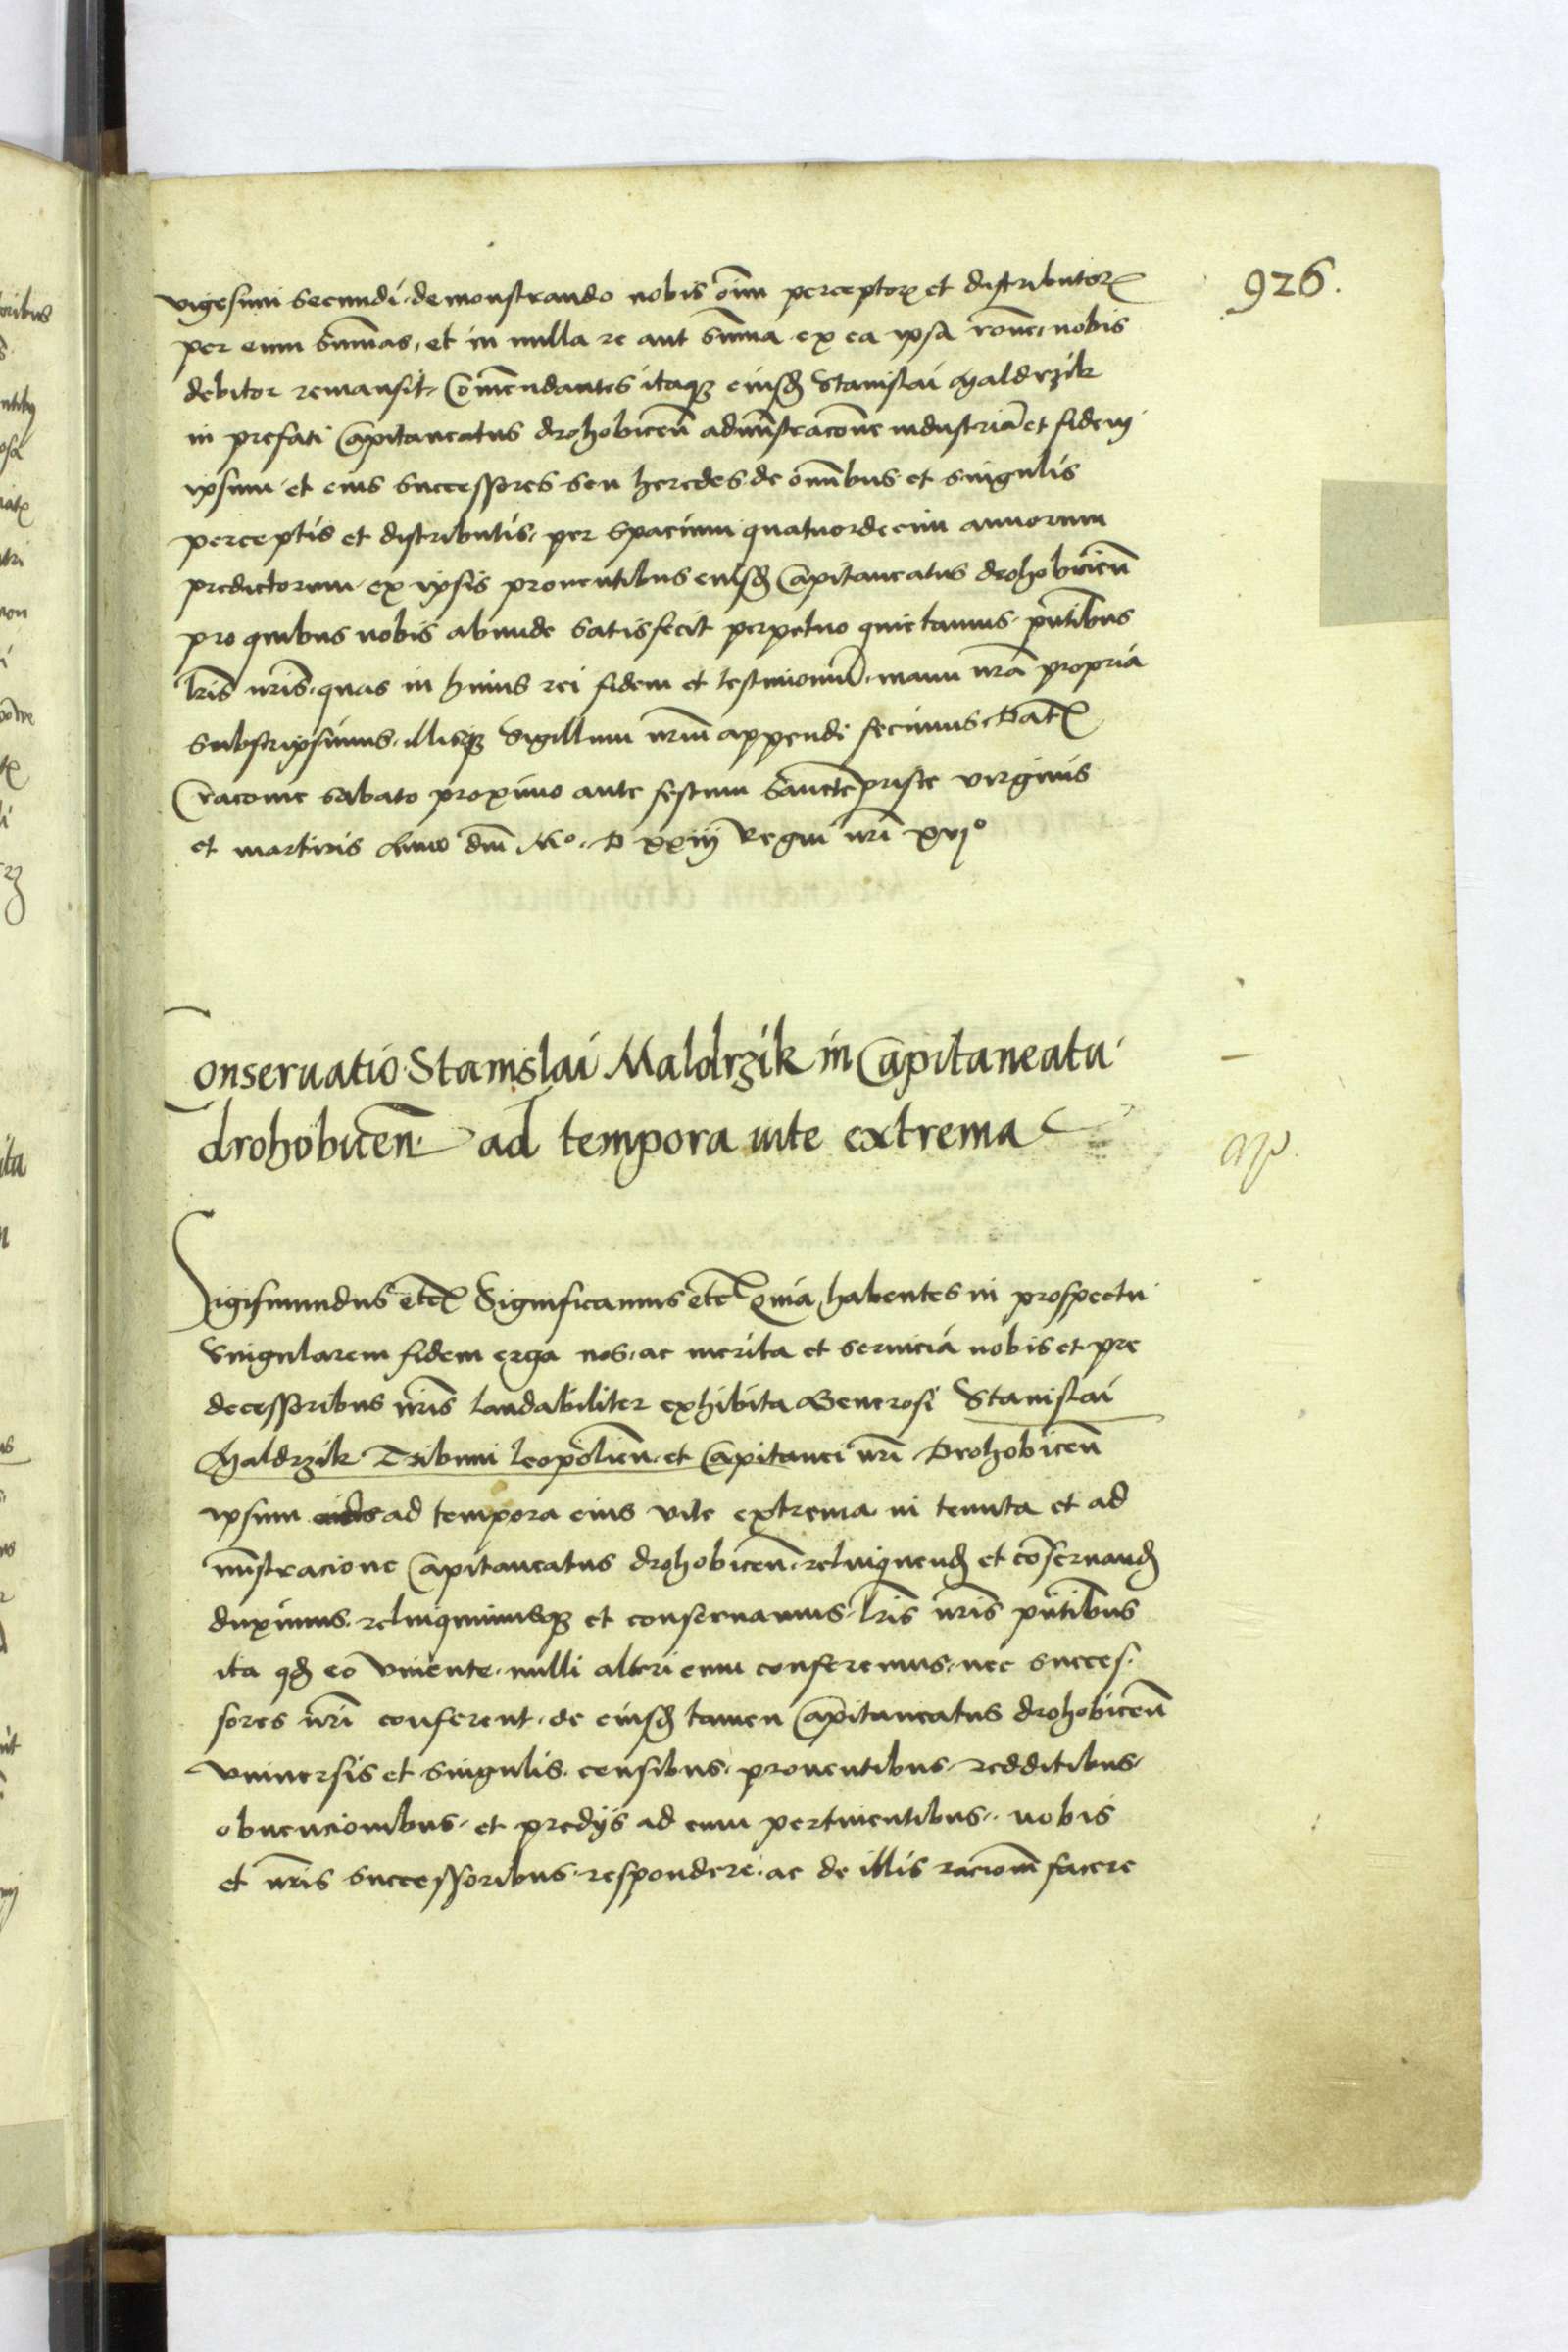 926.
vigesimi secundi. demonstrando nobis oim perceptor et distributor
per eum summas, et in nulla re aut summa ex ea ipsa rone. nobis
debitor remansit. Comendantes itaq eiusd Stanislai Maldrzik
in prefati Capitaneatus drohobicen administracone industria et fidem
ipsum et eius successores seu heredes de omnibus et singulis
perceptis et distributis. per spacium quatuordecim annorum
predictorum. ex ipsis prouentibus eiusd Capitaneatus drohobicien
pro quibus nobis abunde satisfecit perpetuo quietamus. pntibus
lris nris. quas in huius rei fidem et testimoniu. manu nra propria
subscripsimus. illisq Sigillum nrum appendi fecimus. Dat
Cracouie sabato proximo ante festum Sancte prisce virginis
et martiris Anno dni Mo. D xxiij Regni nri xvjo
Conseruatio Stanislai Maldrzik in Capitaneatu
drohobicen. ad tempora uite extrema
Sigismundus etc Significamus etc Quia habentes in prospectu
singularem fidem erga nos. ac merita et seruicia nobis et pre
decessoribus nris laudabiliter exhibita Generosi Stanislai
Maldrzik Tribuni leopolien. et Capitanei nri Drohobicen
ipsum ad tempora eius vite extrema in tenuta et ad
ministracione Capitaneatus drohobicen. relinquend et conseruand
duximus. relinquimusq et conseruamus. lris nris pntibus
ita qd eo viuente. nulli alteri eum conferemus. nec succes.
sores nri conferent. de eiusd tamen Capitaneatus drohobicen
vniuersis et singulis. censibus. prouentibus. redditibus.
obuencionibus. et predijs ad eum pertinentibus. nobis
et nris successoribus. respondere. ac de illis racionem facere